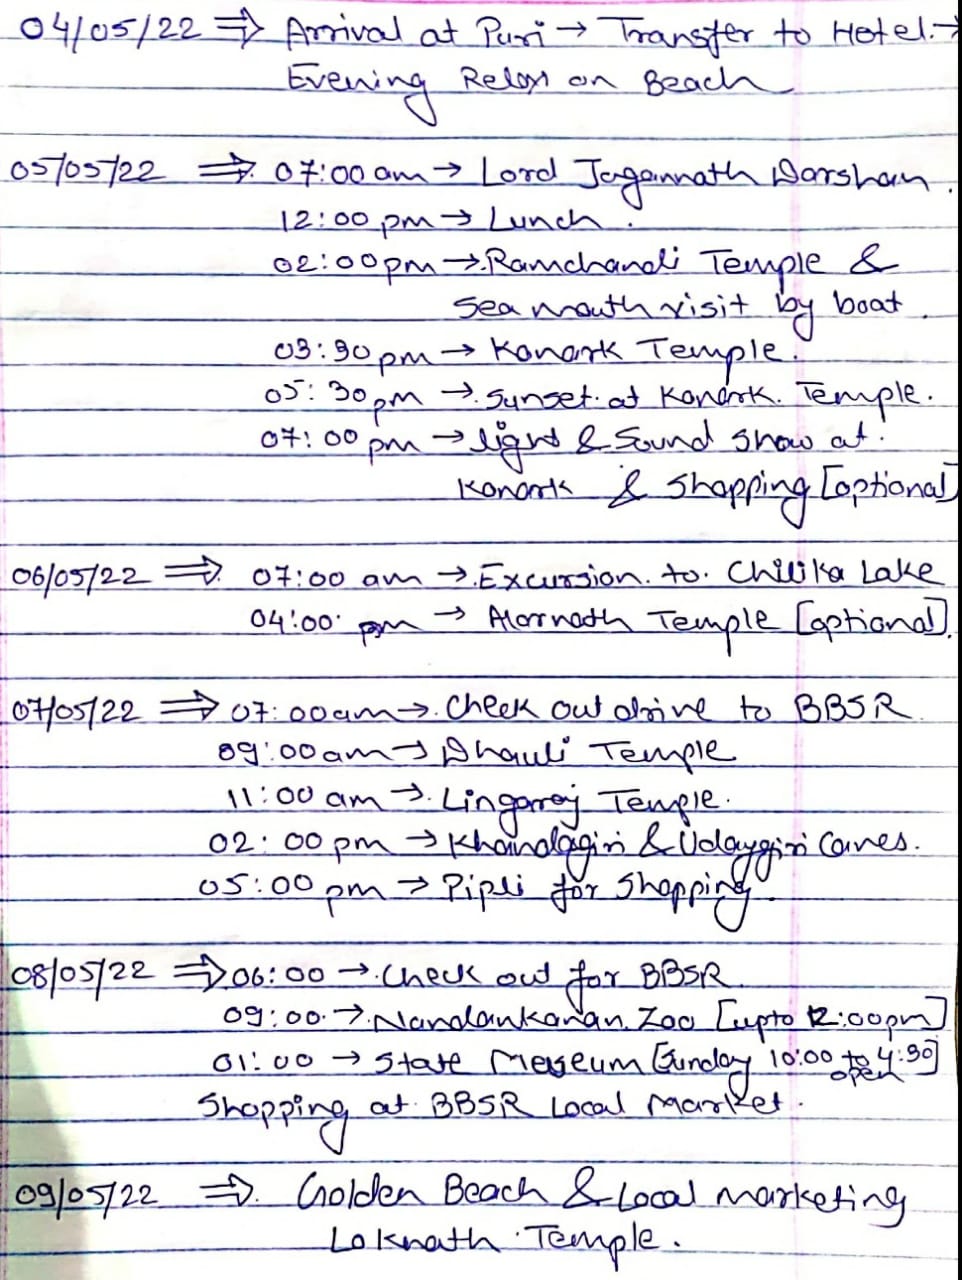 04/05/22 ⇒ Arrival at Puri → Transfer to Hotel. →
Evening Relax on Beach
05/05/22 ⇒ 07:00 am → Lord Jagannath Darshan.
12:00 pm → Lunch.
02:00 pm → Ramchandi Temple &
Sea mouth visit by boat.
03:30 pm → Konark Temple.
05:30 pm → Sunset at Konark Temple.
07:00 pm → light & Sound show at
Konark & Shopping [optional]
06/05/22 ⇒ 07:00 am → Excursion to Chilika Lake
04:00 pm → Alarnath Temple [optional].
07/05/22 ⇒ 07:00 am → Check out drive to BBSR
09:00 am → Dhauli Temple
11:00 am → Lingaraj Temple.
02:00 pm → Khandagiri & Udaygiri Caves.
05:00 pm → Pipli for Shopping
08/05/22 ⇒ 06:00 → Check out for BBSR
09:00 → Nandankanan Zoo [upto 12:00pm]
01:00 → State Museum [Sunday 10:00 to 4:30]
open
Shopping at BBSR Local Market.
09/05/22 ⇒ Golden Beach & Local marketing
Loknath Temple.